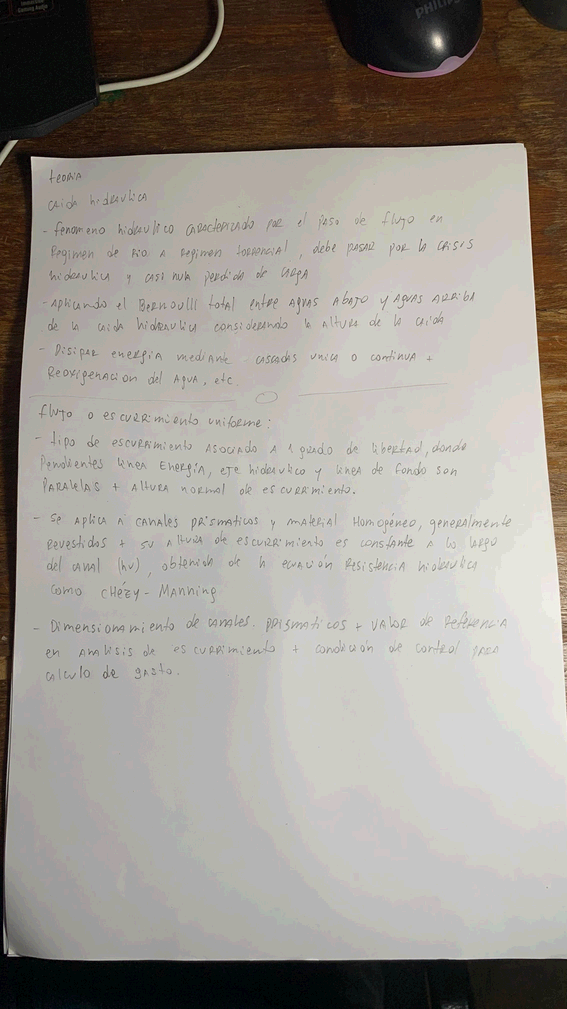 PHILIPS
teoria
caida hidraulica
- fenomeno hidraulico caracterizado por el paso de flujo en
Regimen de Rio a Regimen torrencial, debe pasar por la crisis
hidraulica y casi nula perdida de carga
- Aplicando el Bernoulli total entre aguas abajo y aguas arriba
de la caida hidraulica considerando la altura de la caida
- Disipar energia mediante cascadas unica o continua +
Reoxigenacion del agua, etc.
flujo o escurrimiento uniforme:
- tipo de escurrimiento asociado a 1 grado de libertad, donde
Pendientes linea Energía, eje hidraulico y linea de fondo son
Paralelas + altura normal de escurrimiento.
- Se aplica a canales prismaticos y material Homogéneo, generalmente
revestidos + su altura de escurrimiento es constante a lo largo
del canal (hn), obtenida de la ecuación Resistencia hidraulica
como Chézy - Manning
- Dimensionamiento de canales. prismaticos + valor de Referencia
en analisis de escurrimiento + condición de control para
calculo de gasto.